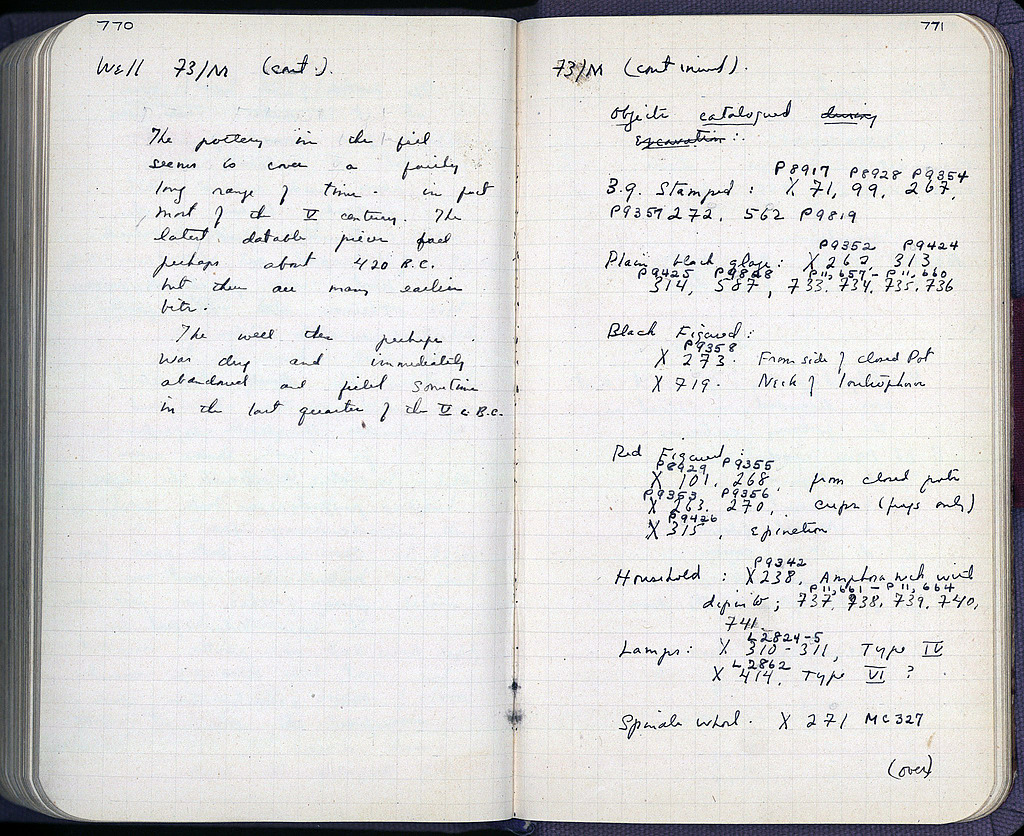 770
Well 73/M (cont.).
The pottery in the fill
seems to cover a fairly
long range of time. in fact
most of the V century. The
latest datable pieces feel
perhaps about 420 B.C.
but there are many earlier
bits.
The well then perhaps
was dug and immediately
abandoned and filled sometime
in the last quarter of the V c B.C.
771
73/M (continued).
Objects catalogued during
excavation:
P8917 P8928 P9354
B.g. Stamped: X 71, 99, 267,
P9357 272, 562 P9819
P9352 P9424
Plain black glaze: X 262, 313
P9425 P9828 P11,657 - P11,660
314, 587, 733, 734, 735, 736
Black Figured:
P9358
X 273. From side of closed Pot
X 719. Neck of loutrophoros
Red Figured:
P8929 P9355
X 101, 268, from closed pots
P9353 P9356
X 263, 270, cups (frgs only)
P9426
X 315, Epinetron
P9342
Household: X 238, Amphora neck with
P11,661 - P11,664
dipinto; 737, 738, 739, 740,
741.
L2824-5
Lamps: X 310-311, Type IV
L2862
X 414, Type VI ?
Spindle whorl. X 271 MC327
(over)